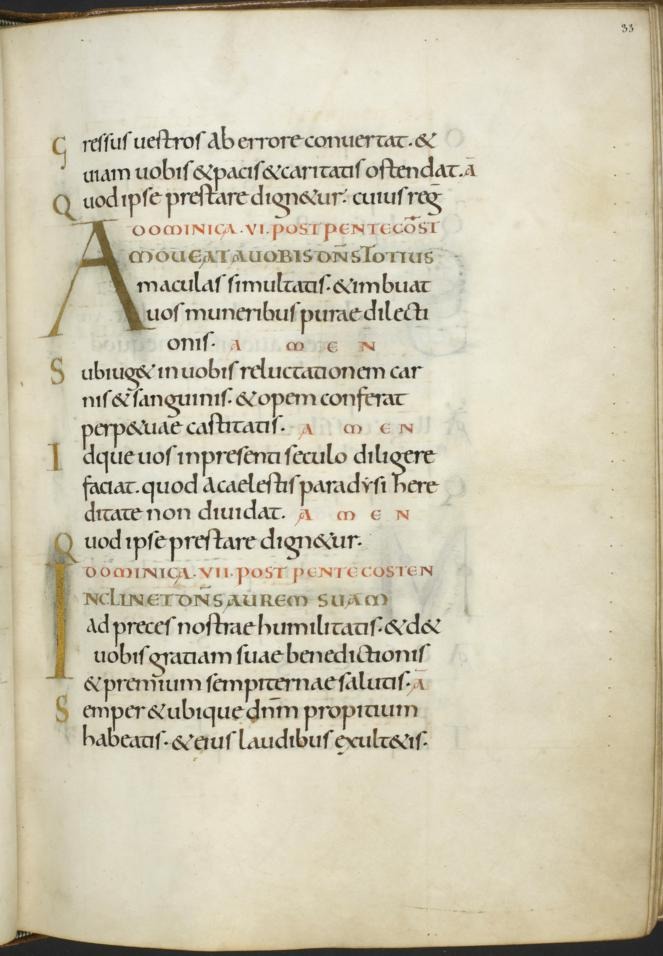 33
Gressus uestros ab errore conuertat. &
uiam uobis & pacis & caritatis ostendat. ā
Quod ipse prestare dign&ur. cuius reg̅
DOMINICA . VI . POST PENTECOS̅T
AMOUEAT A UOBIS DN̅S TOTIUS
maculas simultatis. & imbuat
uos muneribus purae dilecti
onis. A M E N
Subiug& in uobis reluctationem car
nis & sanguinis. & opem conferat
perp&uae castitatis. A M E N
Idque uos in presenti seculo diligere
faciat. quod a caelestis paradẏsi here
ditate non diuidat. A M E N
Quod ipse prestare dign&ur.
DOMINICA . VII . POST PENTECOSTEN
INCLINET DN̅S AUREM SUAM
ad preces nostrae humilitatis. & d&
uobis gratiam suae benedictionis
& premium sempiternae salutis. ā
Semper & ubique dn̅m propitium
habeatis. & eius laudibus exult&is.